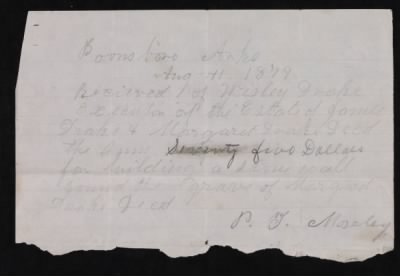 Boonsboro Arks
Aug 1878
Recieved of Wesley Drake
Executor of the Estate of James
Drake & Margaret Drake Decd
the Sum Seventy five Dollars
for building a stone wall
round the graves of Margaret
Drake Decd
P. F. Mosley